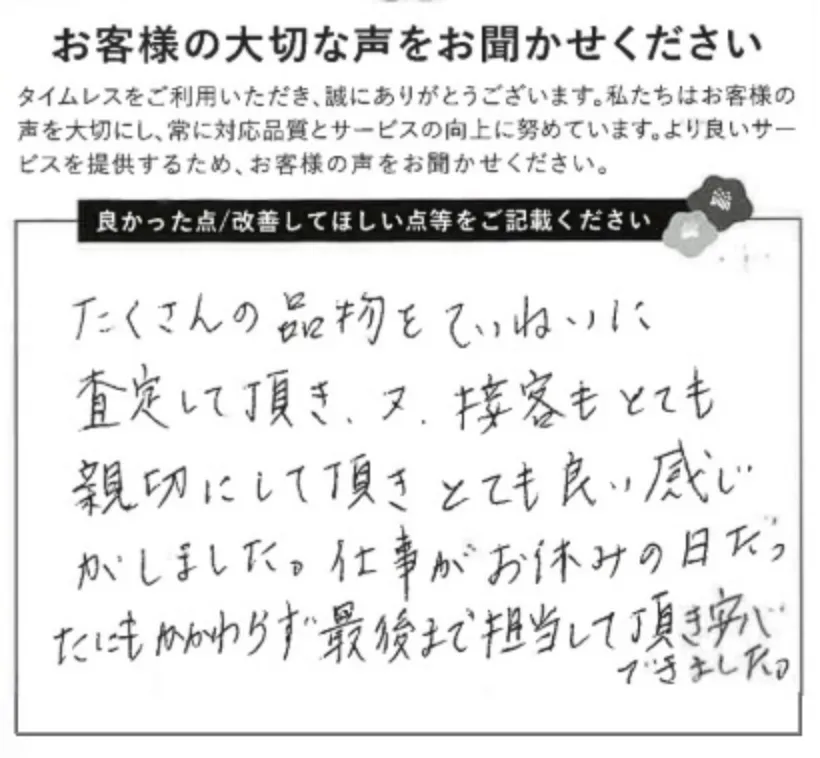 お客様の大切な声をお聞かせください
タイムレスをご利用いただき、誠にありがとうございます。私たちはお客様の
声を大切にし、常に対応品質とサービスの向上に努めています。より良いサー
ビスを提供するため、お客様の声をお聞かせください。
良かった点/改善してほしい点等をご記載ください
たくさんの品物をていねいに
査定して頂き、又、接客もとても
親切にして頂きとても良い感じ
がしました。仕事がお休みの日だっ
たにもかかわらず最後まで担当して頂き安心
できました。